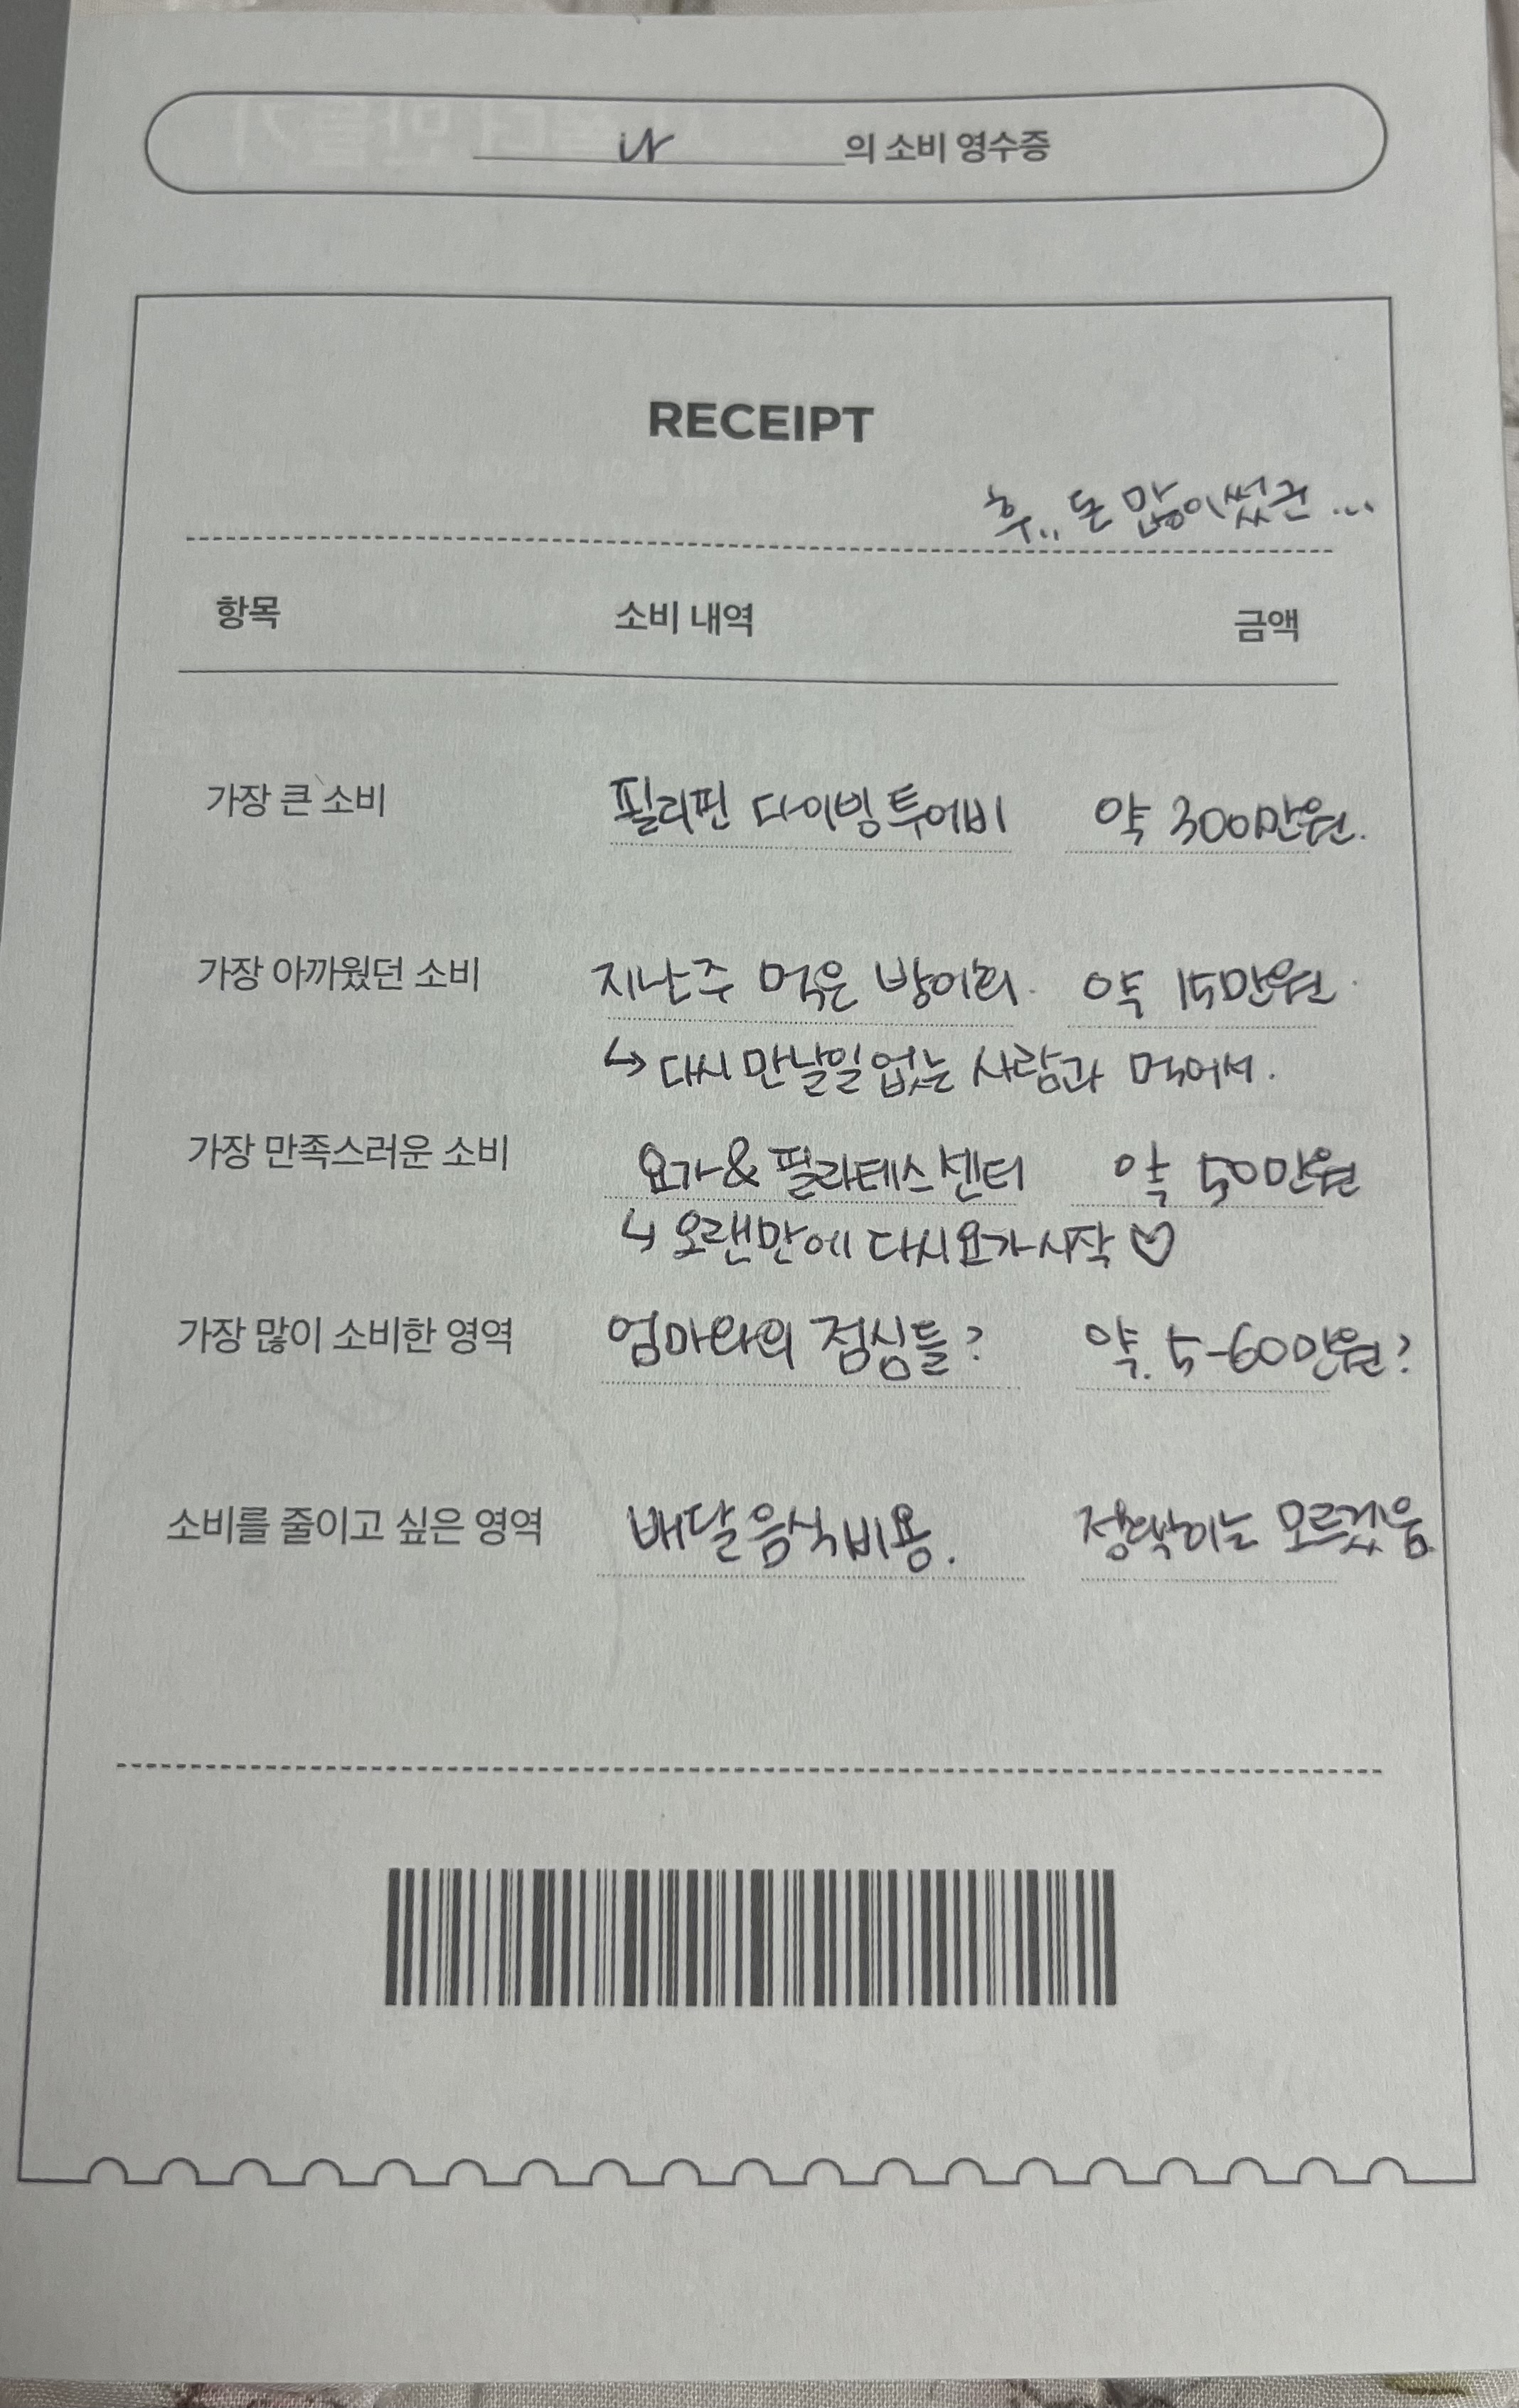 나 의 소비 영수증
RECEIPT
후.. 돈 많이 썼군...
항목 소비 내역 금액
가장 큰 소비 필리핀 다이빙 투어비 약 300만원.
가장 아까웠던 소비 지난주 먹은 방어회. 약 15만원.
↳ 다시 만날일 없는 사람과 먹어서.
가장 만족스러운 소비 요가&필라테스 센터 약 50만원
↳ 오랜만에 다시 요가 시작 ♡
가장 많이 소비한 영역 엄마와의 점심들? 약. 5-60만원?
소비를 줄이고 싶은 영역 배달음식비용. 정확히는 모르겠음